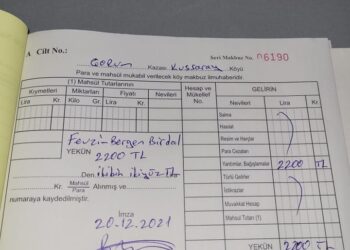 A Cilt No.:
Seri Makbuz No. 06190
Çorum Kazası Kussaray Köyü
Para ve mahsül mukabil verilecek köy makbuz ilmuhaberidir.
(1) Mahsul Tutarlarının
Hesap ve Mükellef No.
GELİRİN
Kıymetleri Miktarları Fiyatı Nevileri
Nevileri Lira Kr.
Lira Kr. Kilo Gr. Lira Kr.
Salma
Hasılat
Resim ve Harçlar
Para Cezaları
Fevzi-Bergen Birdal
Yardımlar, Bağışlamalar 2200 TL
YEKÜN 2200 TL
Türlü Gelirler
Den ikibin ikiyüz TL
İstikrazlar
Kr. Mahsül Para Alınmış ve
Muvakkat Hesap
numaraya kaydedilmiştir.
Mahsul Tutarı (1)
İmza
20.12.2021
YEKÜN 2200 TL